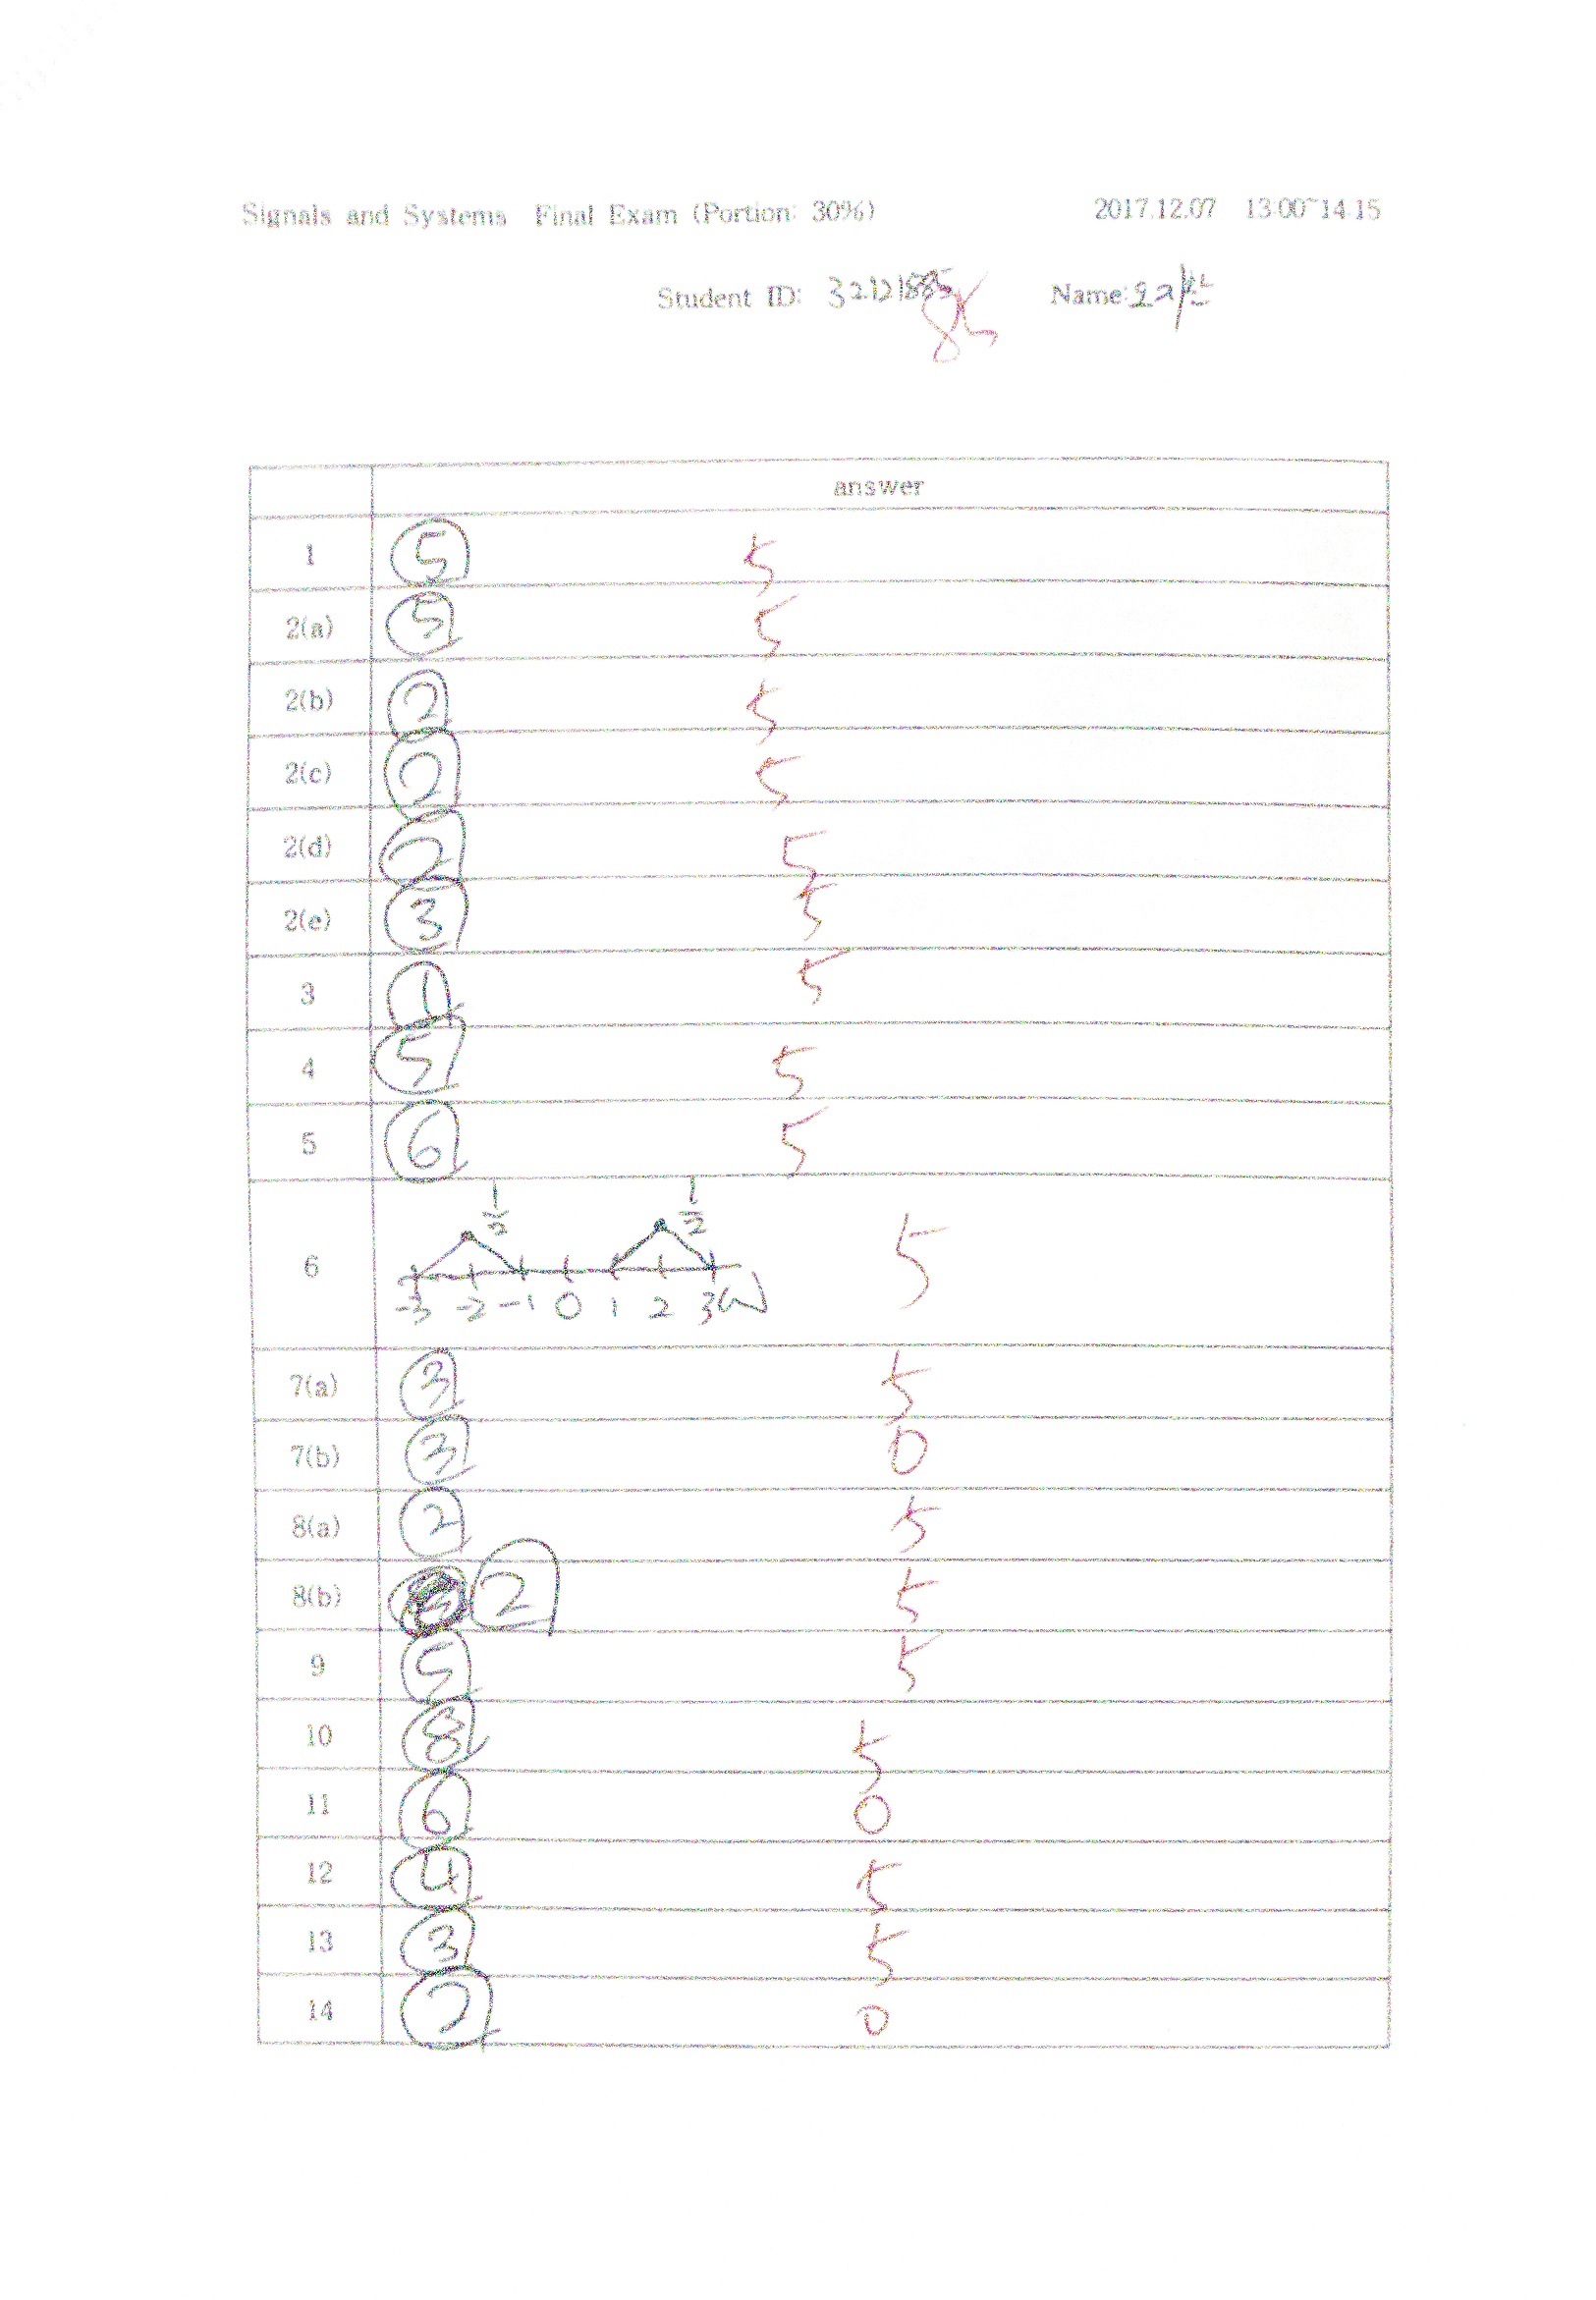 Signals and Systems Final Exam (Portion: 30%) 2017.12.07 13:00~14:15
Student ID: Name:
85
answer
1 ⑤ 5
2(a) ⑤ 5
2(b) ② 5
2(c) ② 5
2(d) ② 5
2(e) ③ 5
3 ① 5
4 ⑤ 5
5 ⑥ 5
1/2 1/2
6 5
-3 -2 -1 0 1 2 3 ω
7(a) ③ 5
7(b) ③ 0
8(a) ② 5
8(b) ② 5
9 ⑤ 5
10 ⑧ 5
11 ⑥ 0
12 ④ 5
13 ③ 5
14 ② 0